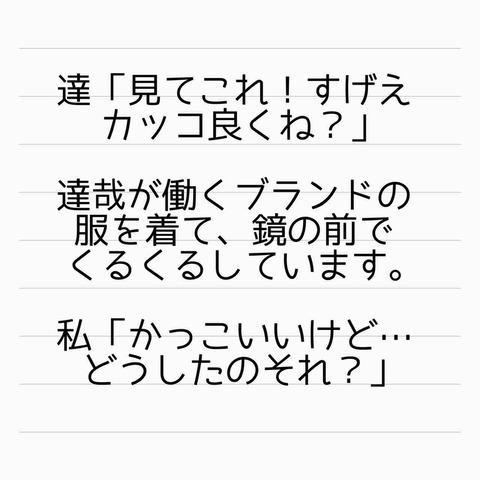 達「見てこれ！すげえ
カッコ良くね？」
達哉が働くブランドの
服を着て、鏡の前で
くるくるしています。
私「かっこいいけど…
どうしたのそれ？」